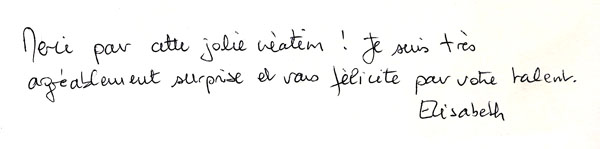 Merci pour cette jolie création ! Je suis très
agréablement surprise et vous félicite pour votre talent.
Elisabeth